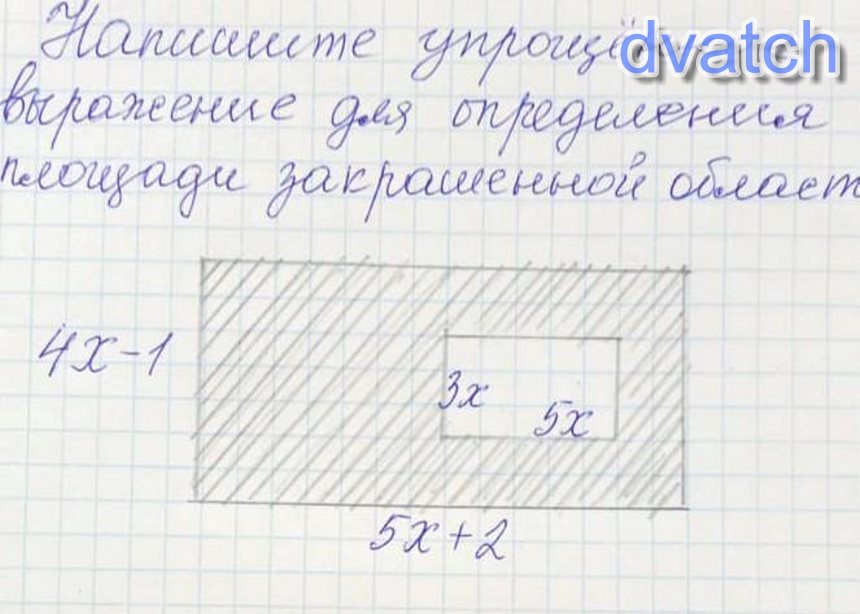 Напишите
dvatch
выражение для определения
площади закрашенной област
4x-1
3x
5x
5x+2